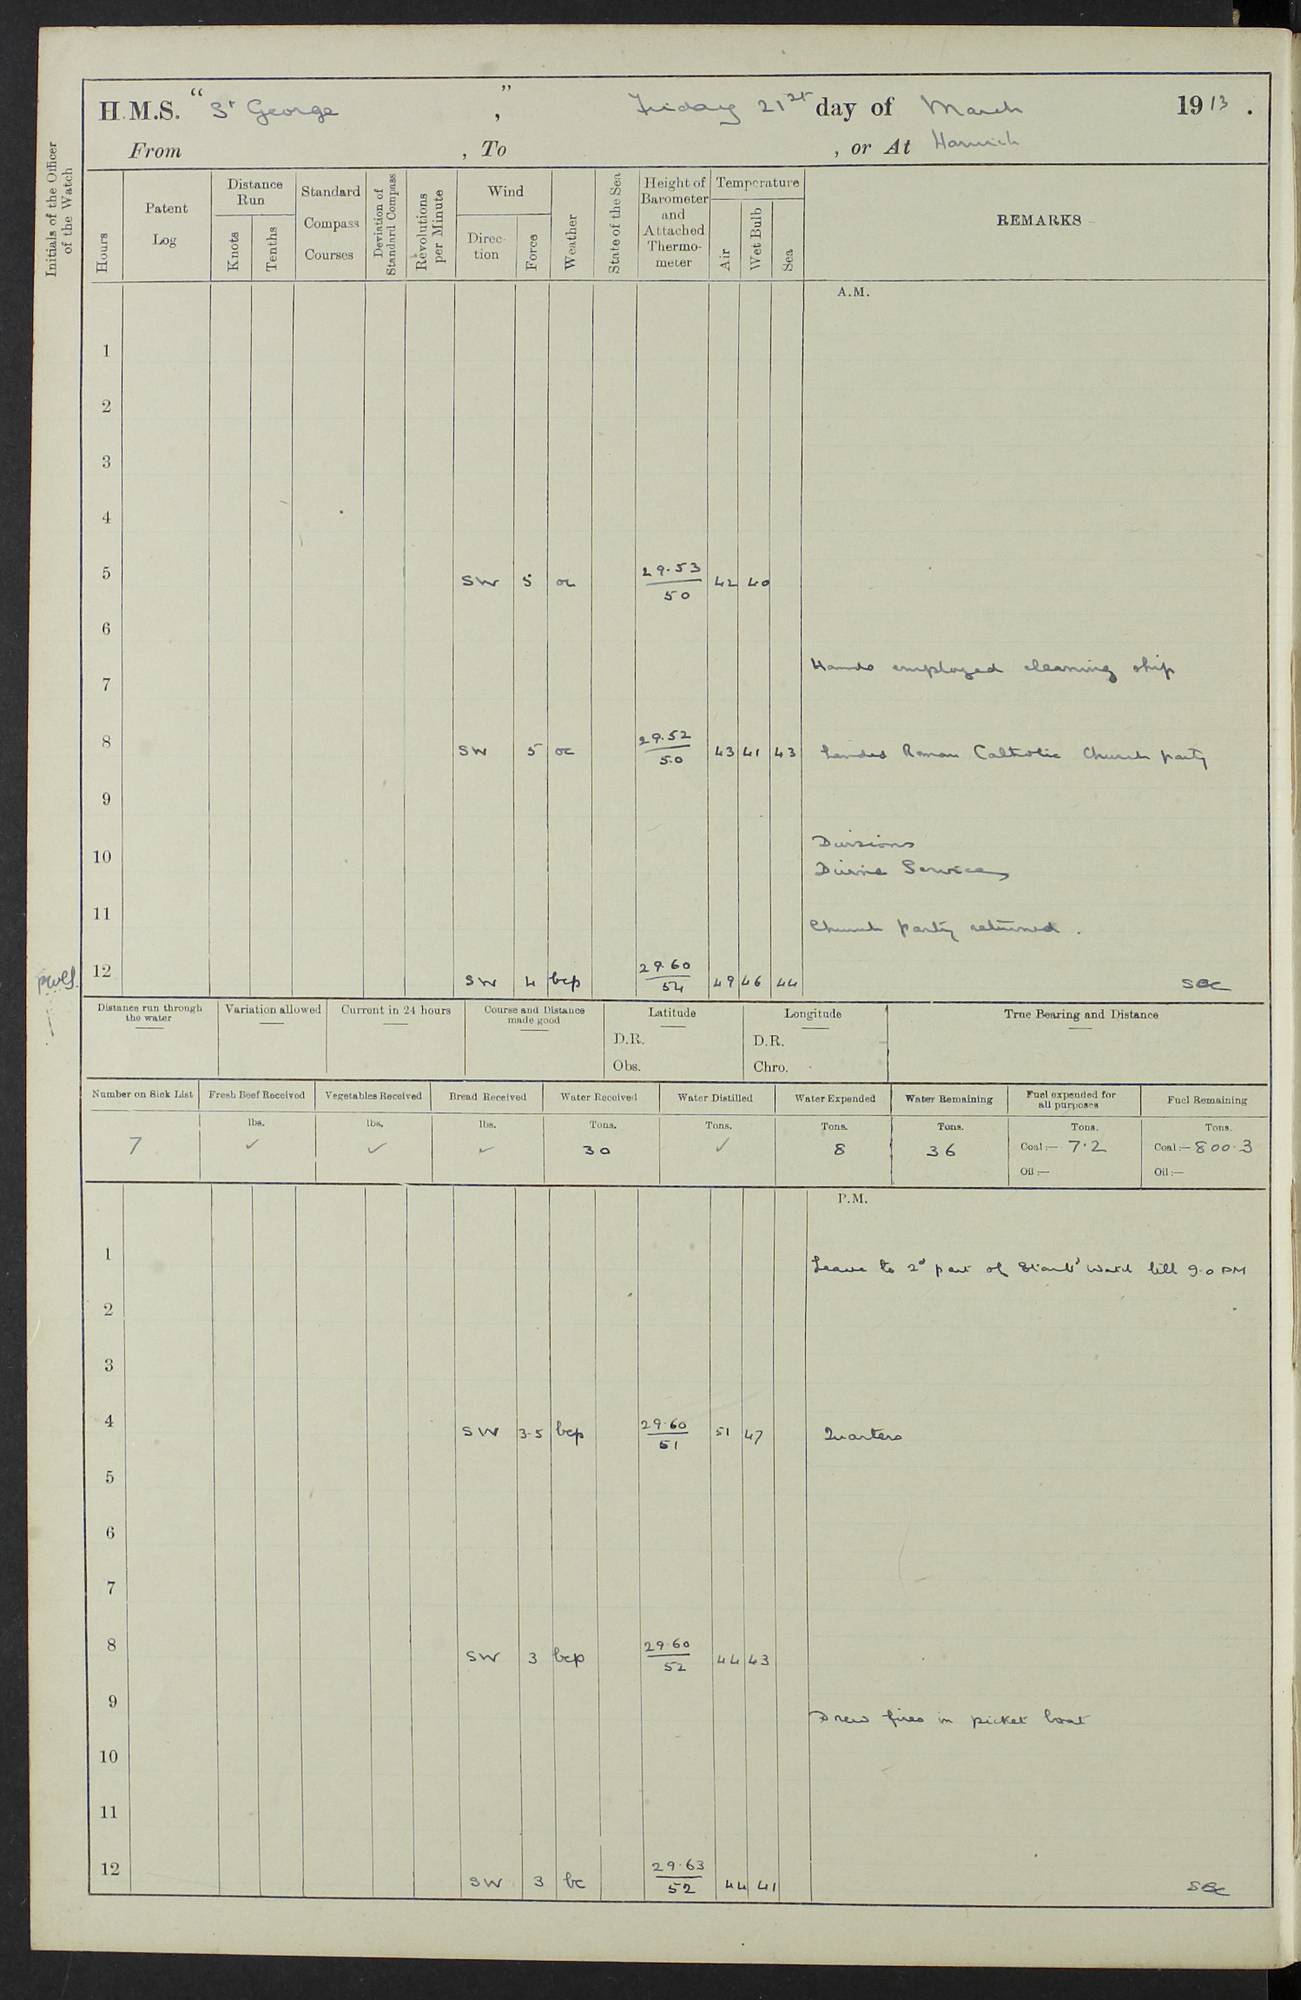 H.M.S. "St George", Friday 21st day of March 1913.
From , To , or At Harwich
Initials of the Officer of the Watch
Hours
Patent Log
Distance Run
Knots
Tenths
Standard Compass Courses
Deviation of Standard Compass
Revolutions per Minute
Wind
Direction
Force
Weather
State of the Sea
Height of Barometer and Attached Thermometer
Temperature
Air
Wet Bulb
Sea
REMARKS
A.M.
1
2
3
4
5 SW 5 oc 29.53/50 42 40
6
Hands employed cleaning ship
7
8 SW 5 oc 29.52/50 43 41 43 Landed Roman Catholic Church party
9
Divisions
10
Divine Services
11
Church party returned.
12 SW 4 bcp 29.60/54 49 46 44
Distance run through the water
Variation allowed
Current in 24 hours
Course and Distance made good
Latitude
D.R.
Obs.
Longitude
D.R.
Chro.
True Bearing and Distance
Number on Sick List 7
Fresh Beef Received lbs. ✓
Vegetables Received lbs. ✓
Bread Received lbs. ✓
Water Received Tons. 30
Water Distilled Tons. ✓
Water Expended Tons. 8
Water Remaining Tons. 36
Fuel expended for all purposes Tons.
Coal:— 7.2
Oil:—
Fuel Remaining Tons.
Coal:— 800.3
Oil:—
P.M.
1
Leave to 2d part of Starbd Watch till 9.0 PM
2
3
4 SW 3-5 bcp 29.60/51 51 47 Quarters
5
6
7
8 SW 3 bcp 29.60/52 44 43
9
Drew fires in picket boat
10
11
12 SW 3 bc 29.63/52 44 41